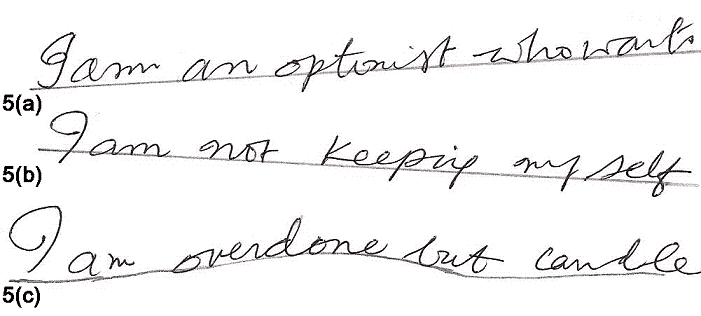 I am an optimist who wants
5(a)
I am not keeping my self
5(b)
I am overdone but candle
5(c)